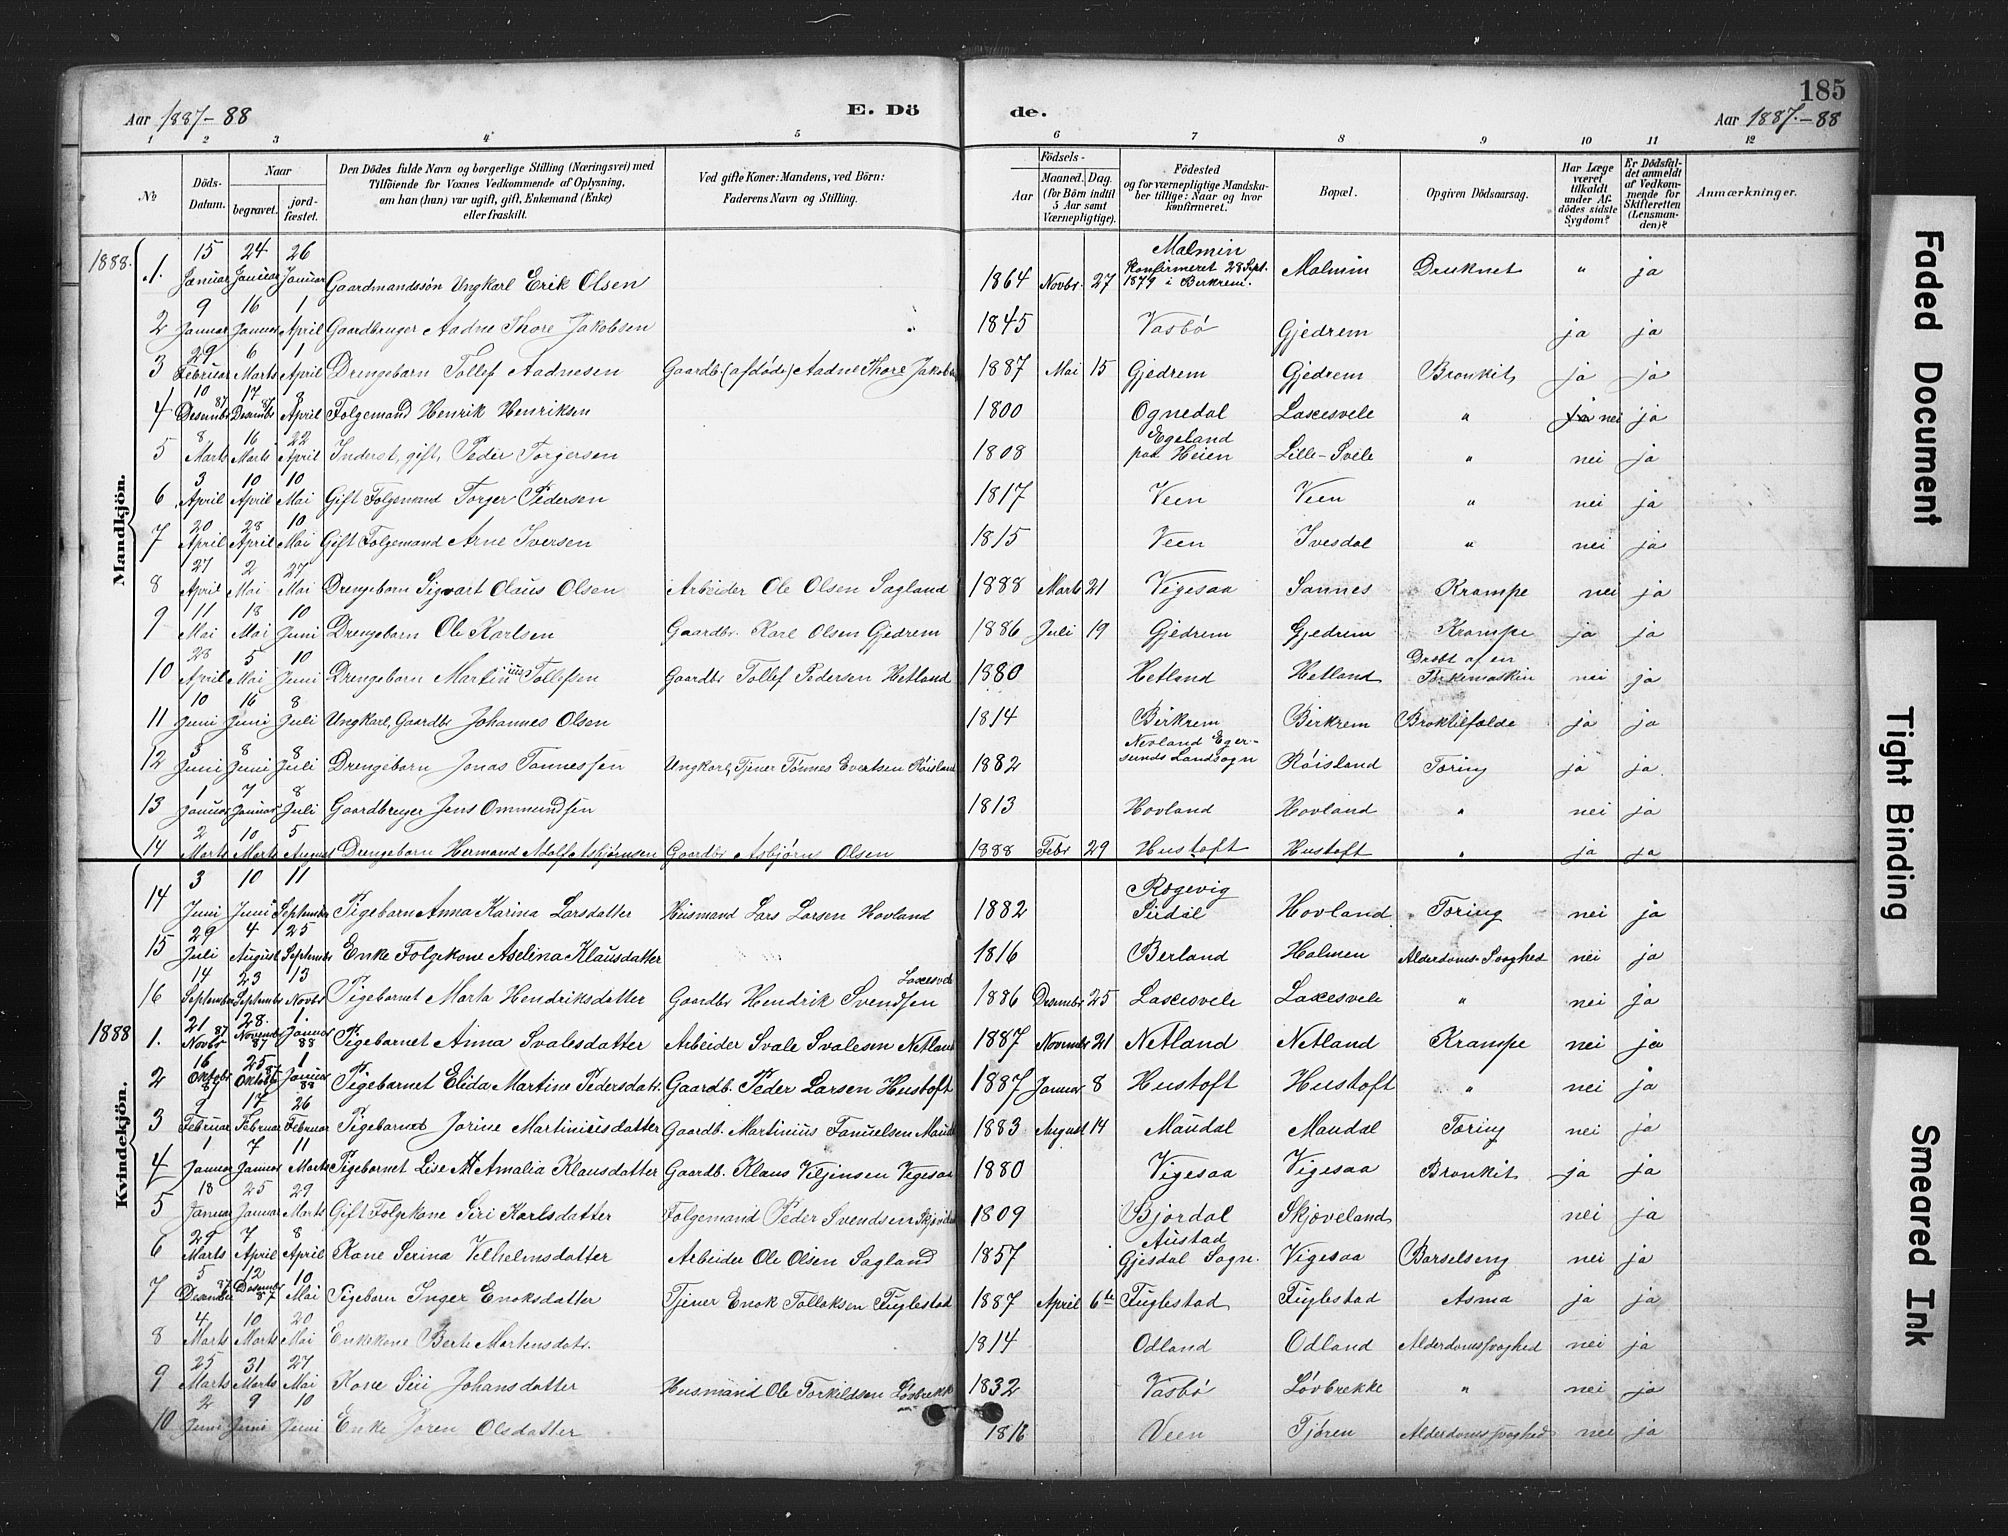 185
Aar 1887-88 E. Dö de. Aar 1887.-88
1 2 3 4 5 6 7 8 9 10 11 12
No Döds-Datum. Naar begravet. jord-fæstet. Den Dödes fulde Navn og borgerlige Stilling (Næringsvei) med Tilföiende for Voxnes Vedkommende af Oplysning, om han (hun) var ugift, gift, Enkemand (Enke) eller fraskilt. Ved gifte Koner: Mandens, ved Börn: Faderens Navn og Stilling. Födsels- Aar Maaned. Dag. (for Börn indtil 5 Aar samt Værnepligtige). Födested og for værnepligtige Mandskaber tillige: Naar og hvor konfirmeret. Bopæl. Opgiven Dödsaarsag. Har Læge været tilkaldt under Afdödes sidste Sygdom? Er Dödsfaldet anmeldt af Vedkommende for Skifteretten (Lensmanden)? Anmærkninger.
Mandkjön.
1888. 1. 15 Januar 24 Januar 26 Januar Gaardmandssøn Ungkarl Erik Olsen 1864 Novbr. 27 Malmin Konfirmeret 28 Sept. 1879 i Birkrem. Malmin Druknet " ja
2 9 Januar 16 Januar 1 April Gaardbruger Aadne Thore Jakobsen " 1845 Vasbø Gjedrem ja ja
3 29 Februar 6 Marts 1 April Drengebarn Tollef Aadnesen Gaardb. (afdøde) Aadne Thore Jakobsen 1887 Mai 15 Gjedrem Gjedrem Bronkit ja ja
4 10 Desembr 87 17 Desembr 87 8 April Folgemand Henrik Henriksen 1800 Ognedal Laxesvele " ja nei ja
5 8 Marts 16 Marts 22 April Inderst, gift, Peder Torgersen 1808 Egeland paa Heien Lille-Svele " nei ja
6 3 April 10 April 10 Mai Gift Folgemand Torger Pedersen 1817 Veen Veen " nei ja
7 20 April 28 April 10 Mai Gift Folgemand Arne Iversen 1815 Veen Ivesdal " nei ja
8 27 April 2 Mai 27 Mai Drengebarn Sigvart Olaus Olsen Arbeider Ole Olsen Sagland 1888 Marts 21 Vigesaa Sannes Krampe nei ja
9 11 Mai 18 Mai 10 Juni Drengebarn Ole Karlsen Gaardbr. Karl Olsen Gjedrem 1886 Juli 19 Gjedrem Gjedrem Krampe ja ja
10 28 April 5 Mai 10 Juni Drengebarn Martinius Tollefsen Gaardbr Tollef Pedersen Hetland 1880 Hetland Hetland Dræbt af en nei ja
11 10 Juni 16 Juni 8 Juli Ungkarl, Gaardbr Johannes Olsen 1814 Birkrem Birkrem Broktilfælde ja ja
12 3 Juni 8 Juni 8 Juli Drengebarn Jonas Tønnessen Ungkarl, Tjener Tønnes Evertsen Røisland 1882 Nevland Egersunds Landsogn Røisland Tæring ja ja
13 1 Januar 7 Januar 8 Juli Gaardbruger Jens Ommundsen 1813 Hovland Hovland " nei ja
14 2 Marts 10 Marts 5 August Drengebarn Hermand Adolf Asbjørnsen Gaardbr Asbjørn Olsen 1888 Febr 29 Hustoft Hustoft " ja ja
Kvindekjön.
14 3 Juni 10 Juni 11 September Pigebarn Anna Karina Larsdatter Husmand Lars Larsen Hovland 1882 Rægevig Sirdal Hovland Tæring nei ja
15 29 Juli 4 August 25 September Enke Folgekone Aselina Klausdatter 1816 Berland Holmen Alderdoms-Svaghed nei ja
16 14 September 23 September 13 Novbr Pigebarnet Marta Hendriksdatter Gaardbr Hendrik Svendsen Laxesvele 1886 Desembr 25 Laxesvele Laxesvele " nei ja
1888 1. 21 Novbr 87 28. November 87 1. Januar 88 Pigebarnet Anna Svalesdatter Arbeider Svale Svalesen Netland 1887 November 21 Netland Netland Krampe nei ja
2 16 Oktobr 87 25 Oktobr 87 1 Januar 88 Pigebarnet Elida Martine Pedersdatr. Gaardb. Peder Larsen Hustoft 1887 Januar 8 Hustoft Hustoft " nei ja
3 Februar 17 Februar 26 Februar Pigebarnet Jorine Martiniusdatter Gaardb. Martinius Tanuelsen Maudal 1883 August 14 Maudal Maudal Tæring nei ja
4 1 Januar 7 Januar 11 Marts Pigebarnet Lise M Amalia Klausdatter Gaardb. Klaus Viljinsen Vigesaa 1880 Vigesaa Vigesaa Bronkit ja ja
5 18 Januar 25 Januar 29 Marts Gift Folgekone Siri Karlsdatter Folgemand Peder Svendsen Skjæveland 1809 Bjordal Skjæveland nei ja
6 29 Marts 7 April 8 April Kone Serina Vilhelmsdatter Arbeider Ole Olsen Sagland 1857 Austad Gjesdal Sogn. Vigesaa Barselseng nei ja
7 5 Desember 87 12 Desember 87 10 Mai Pigebarn Inger Enoksdatter Tjener Enok Tollaksen Fuglestad 1887 April 6te Fuglestad Fuglestad Asma ja ja
8 4 Marts 10 Marts 20 Mai Enkekone Berte Mortensdatr. 1814 Odland Odland Alderdomssvaghed nei ja
9 25 Marts 31 Marts 27 Mai Kone Siri Johansdatter Husmand Ole Torkildsen Løvbrekk 1832 Vasbø Løvbrekke " nei ja
10 2 Juni 9 Juni 10 Juni Enke Joren Olsdatter 1816 Veen Tjøren Alderdomssvaghed nei ja
Faded Document
Tight Binding
Smeared Ink